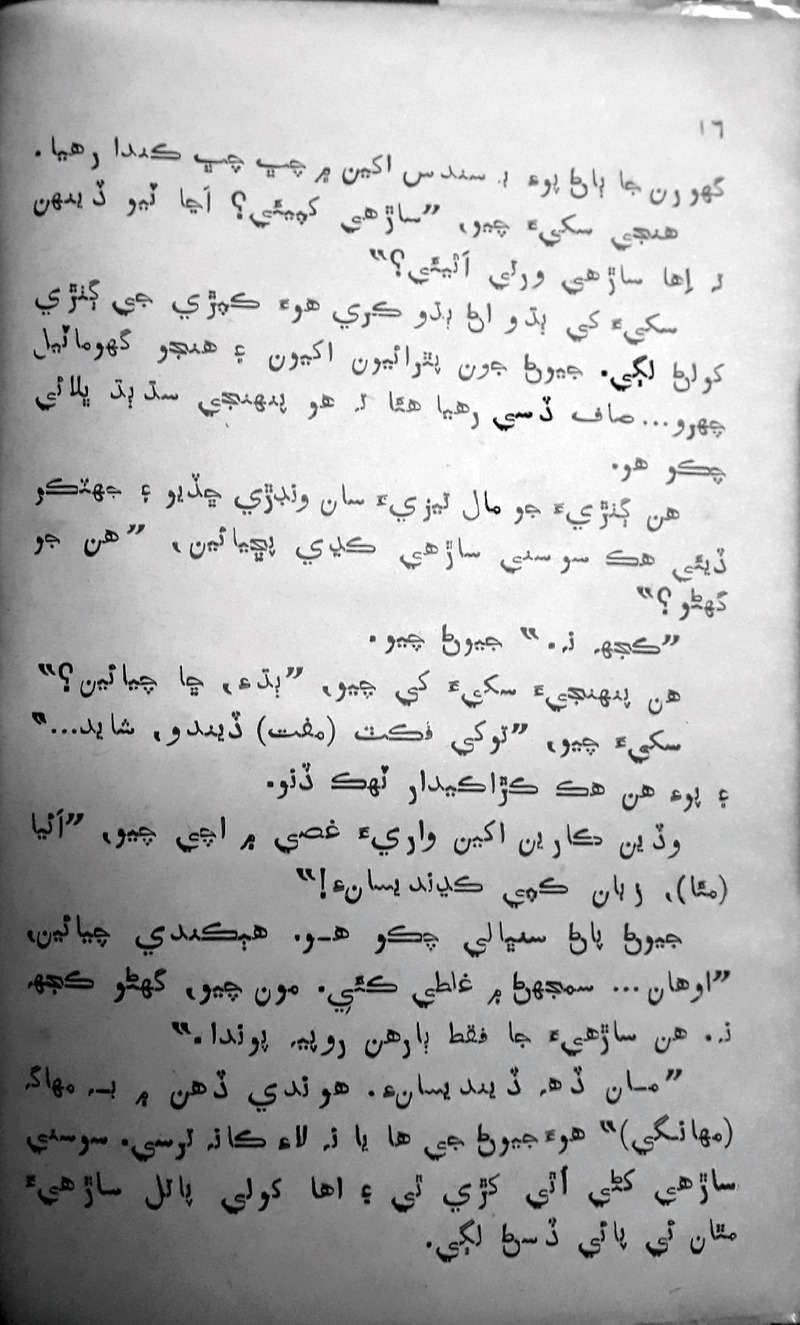 ١٦
گهورن جا ٻاڻ پوءِ بہ سندس اکين ۾ چڀ چڀ ڪندا رهيا.
هنجي سکيءَ چيو، ”ساڙهي کپيئي؟ اڃا ٽيو ڏينهن
تہ اِها ساڙهي ورتي اَٿيئي؟“
سکيءَ کي ٻڌو اڻ ٻڌو ڪري هوءَ ڪپڙي جي ڳنڙي
کولڻ لڳي. جيوڻ جون پٿرائيون اکيون ۽ هنجو گهومائيل
چهرو... صاف ڏسي رهيا هئا تہ هو پنهنجي سڌ ٻڌ ڀلائي
چڪو هو.
هن ڳنڙيءَ جو مال تيزيءَ سان ونڊڙي ڇڏيو ۽ جهٽڪو
ڏيئي هڪ سوسني ساڙهي ڪڍي پڇيائين، ”هن جو
گهڻو؟“
”ڪجهہ نہ.“ جيوڻ چيو.
هن پنهنجيءَ سکيءَ کي چيو، ”ٻڌءِ، ڇا چيائين؟“
سکيءَ چيو، ”توکي ڦڪٽ (مفت) ڏيندو، شايد...“
۽ پوءِ هن هڪ ڪڙاڪيدار ٽهڪ ڏنو.
وڏين ڪارين اکين واريءَ غصي ۾ اچي چيو، ”اَئيا
(مئا)، زبان ڪپي ڪڍنديسانءِ!“
جيوڻ پاڻ سنڀالي چڪو هـو. هٻڪندي چيائين،
”اوهان... سمجهڻ ۾ غلطي ڪئي. مون چيو، گهڻو ڪجهہ
نہ. هن ساڙهيءَ جا فقط ٻارهن روپيہ پوندا.“
”مـان ڏهہ ڏينديسانءِ. هوندي ڏهن ۾ بـہ مهاگہ
(مهانگي)“ هوءَ جيوڻ جي ها يا نہ لاءِ ڪانہ ترسي. سوسني
ساڙهي کڻي اُٿي کڙي ٿي ۽ اها کولي پاتل ساڙهيءَ
مٿان ئي پائي ڏسڻ لڳي.